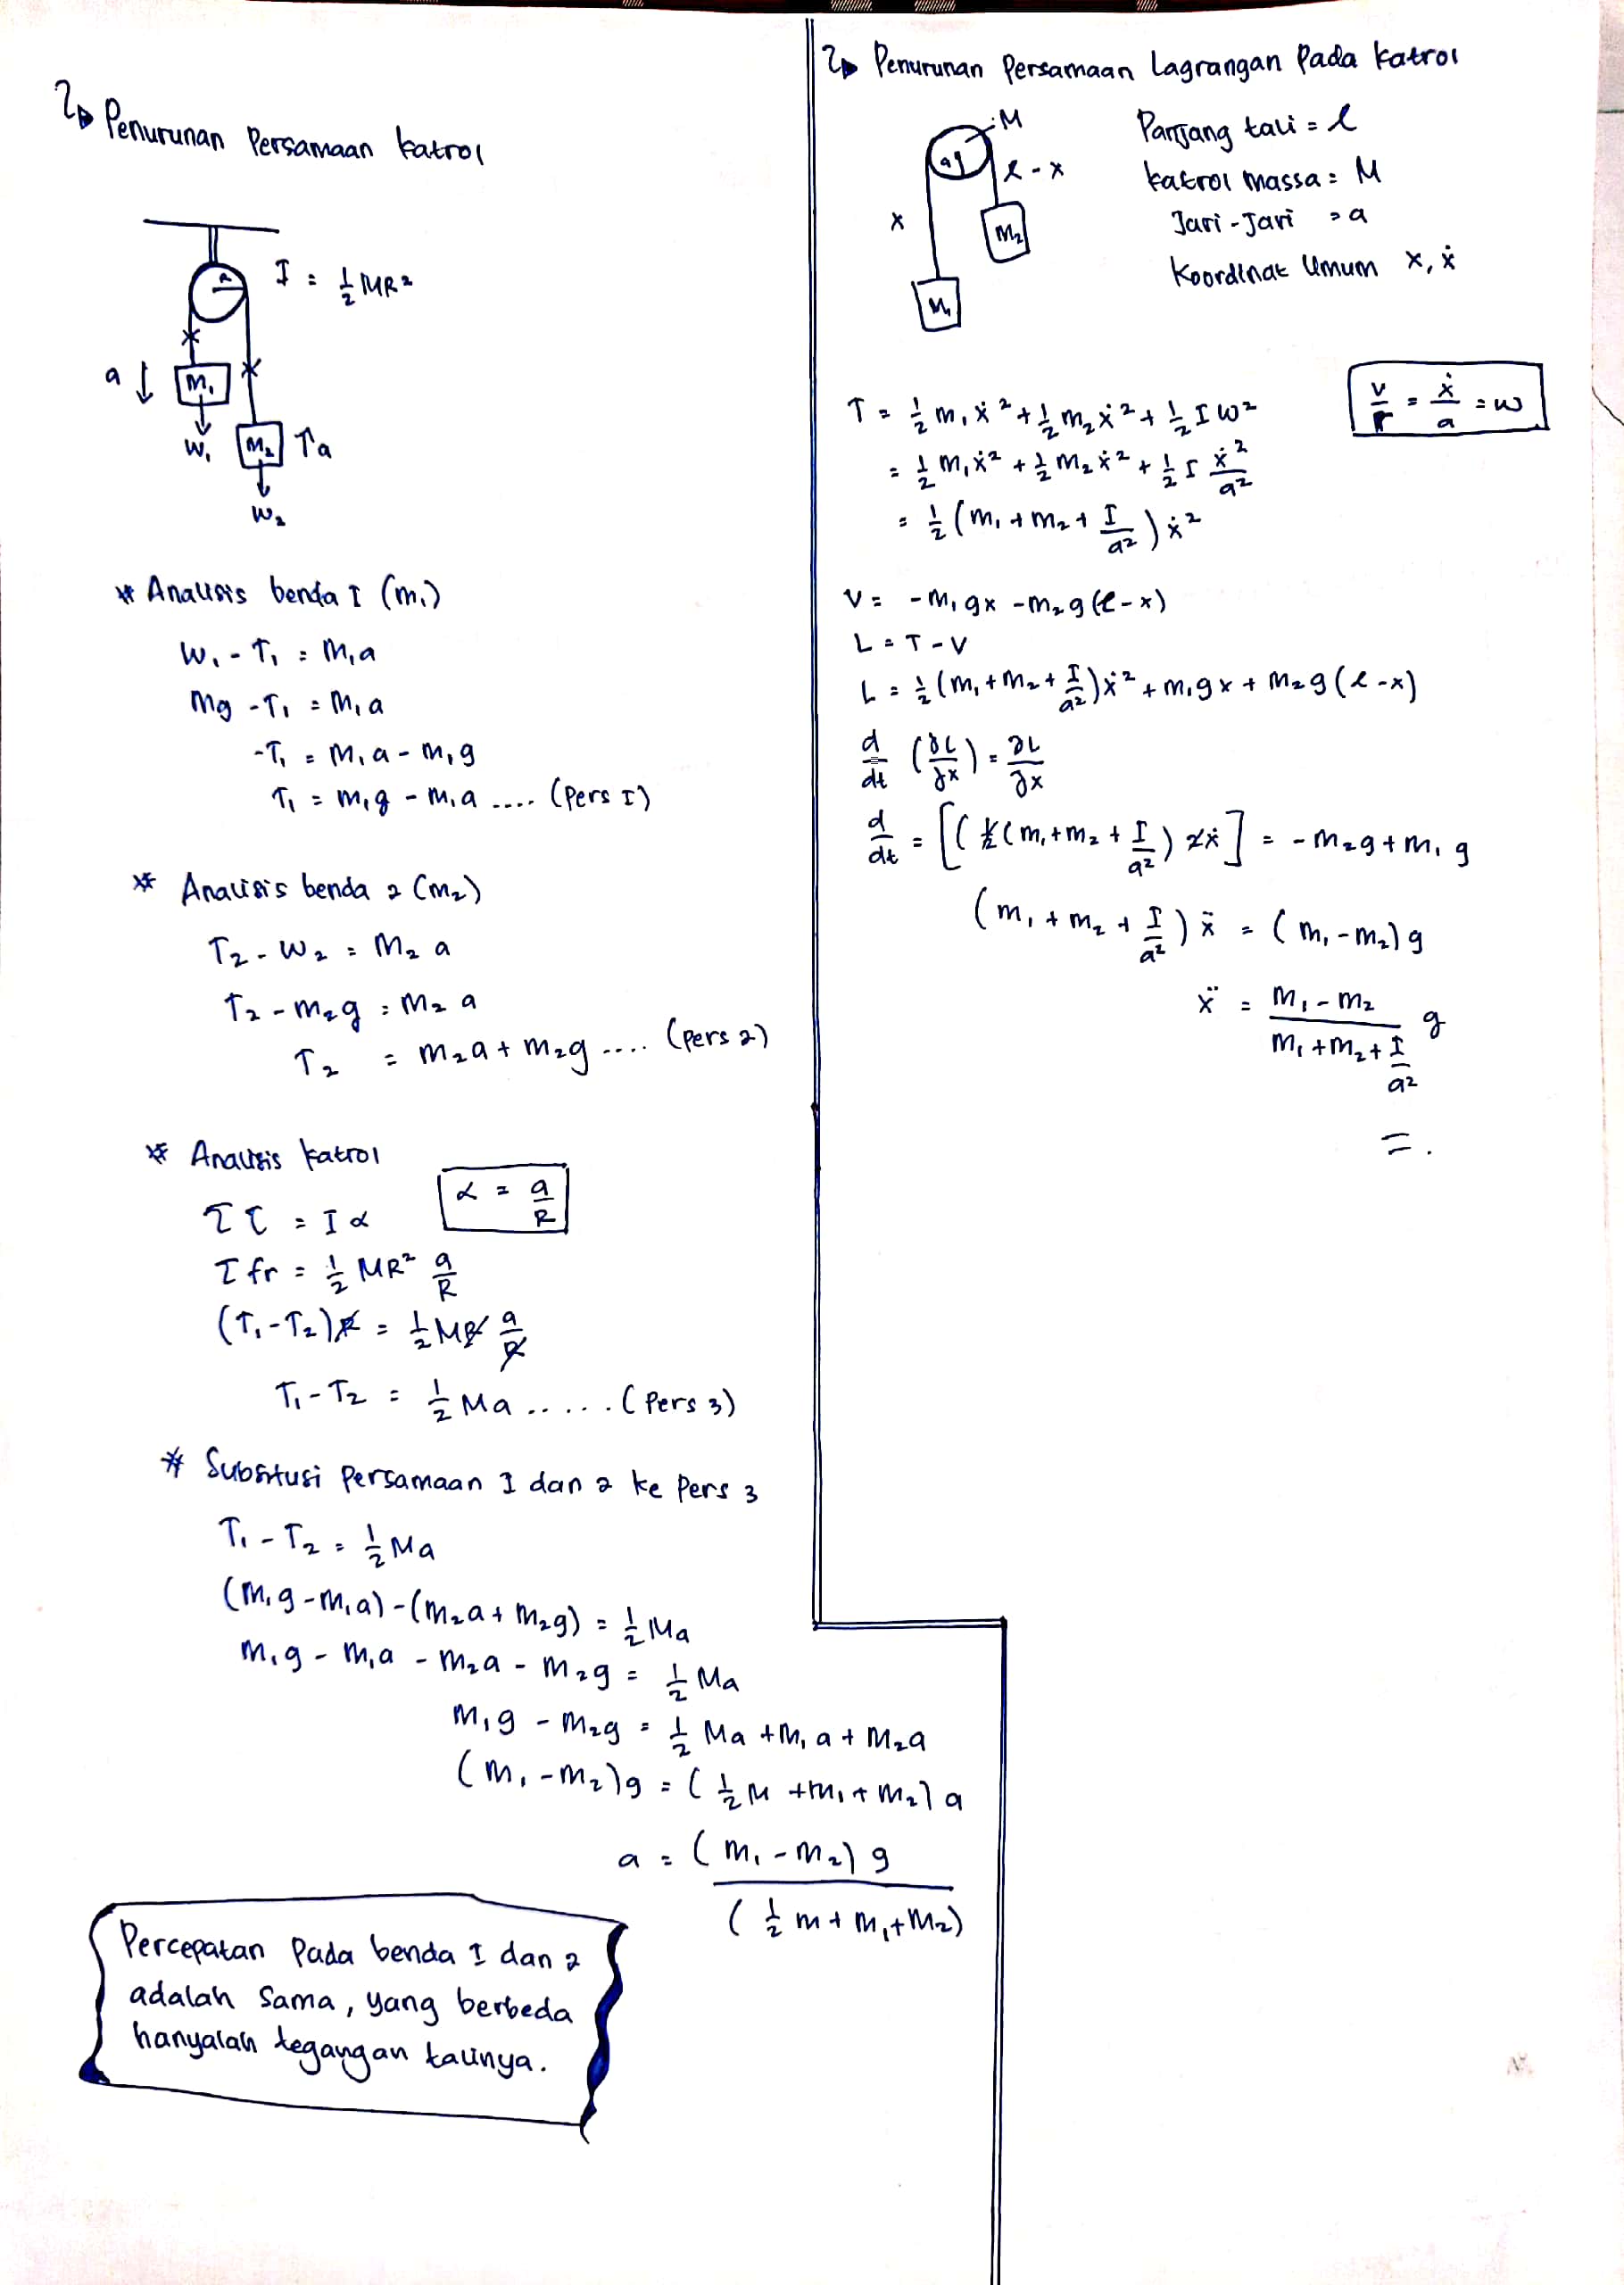 Penurunan Persamaan katrol
R
I = 1/2 MR²
a ↓ m₁
w₁ m₂ ↑a
w₂
* Analisis benda I (m₁)
w₁ - T₁ = m₁a
mg - T₁ = m₁a
-T₁ = m₁a - m₁g
T₁ = m₁g - m₁a .... (Pers I)
* Analisis benda 2 (m₂)
T₂ - w₂ = m₂ a
T₂ - m₂g = m₂ a
T₂ = m₂a + m₂g .... (Pers 2)
* Analisis katrol
α = a/R
Στ = Iα
Σfr = 1/2 MR² a/R
(T₁ - T₂)R = 1/2 MR² a/R
T₁ - T₂ = 1/2 Ma ..... (Pers 3)
* Subsitusi Persamaan I dan 2 ke Pers 3
T₁ - T₂ = 1/2 Ma
(m₁g - m₁a) - (m₂a + m₂g) = 1/2 Ma
m₁g - m₁a - m₂a - m₂g = 1/2 Ma
m₁g - m₂g = 1/2 Ma + m₁a + m₂a
(m₁ - m₂)g = (1/2 M + m₁ + m₂) a
a = (m₁ - m₂) g
(1/2 m + m₁ + m₂)
Percepatan Pada benda I dan 2
adalah Sama, yang berbeda
hanyalah tegangan talinya.
Penurunan Persamaan Lagrangan Pada Katrol
M
a
l - x
x
M₂
M₁
Panjang tali = l
katrol massa = M
Jari-Jari = a
Koordinat Umum x, ẋ
v/r = ẋ/a = ω
T = 1/2 m₁ẋ² + 1/2 m₂ẋ² + 1/2 I ω²
= 1/2 m₁ẋ² + 1/2 m₂ẋ² + 1/2 I ẋ²/a²
= 1/2 (m₁ + m₂ + I/a²) ẋ²
V = -m₁gx - m₂g(l - x)
L = T - V
L = 1/2 (m₁ + m₂ + I/a²)ẋ² + m₁gx + m₂g(l - x)
d/dt (∂L/∂x) = ∂L/∂x
d/dt = [(1/2(m₁ + m₂ + I/a²) 2ẋ] = -m₂g + m₁g
(m₁ + m₂ + I/a²) ẍ = (m₁ - m₂)g
ẍ = m₁ - m₂ / m₁ + m₂ + I/a² g
= .